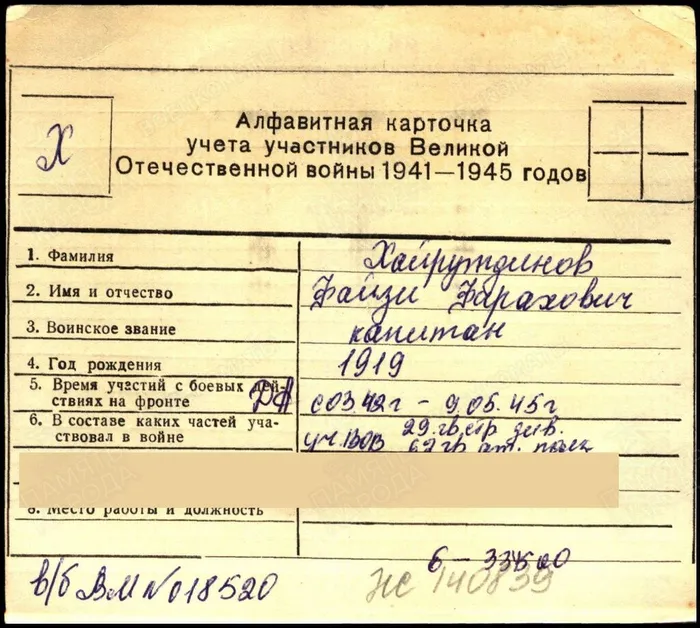 Х
Алфавитная карточка
учета участников Великой
Отечественной войны 1941—1945 годов
1. Фамилия Хайрутдинов
2. Имя и отчество Файзи Фарахович
3. Воинское звание капитан
4. Год рождения 1919
5. Время участий с боевых дей-
ствиях на фронте с 03.42г – 9.05.45г
6. В составе каких частей уча- 29.гв.стр див.
ствовал в войне уч.ВОВ 62 гв.
8. Место работы и должность
в/б ВМ №018520
НС 140839